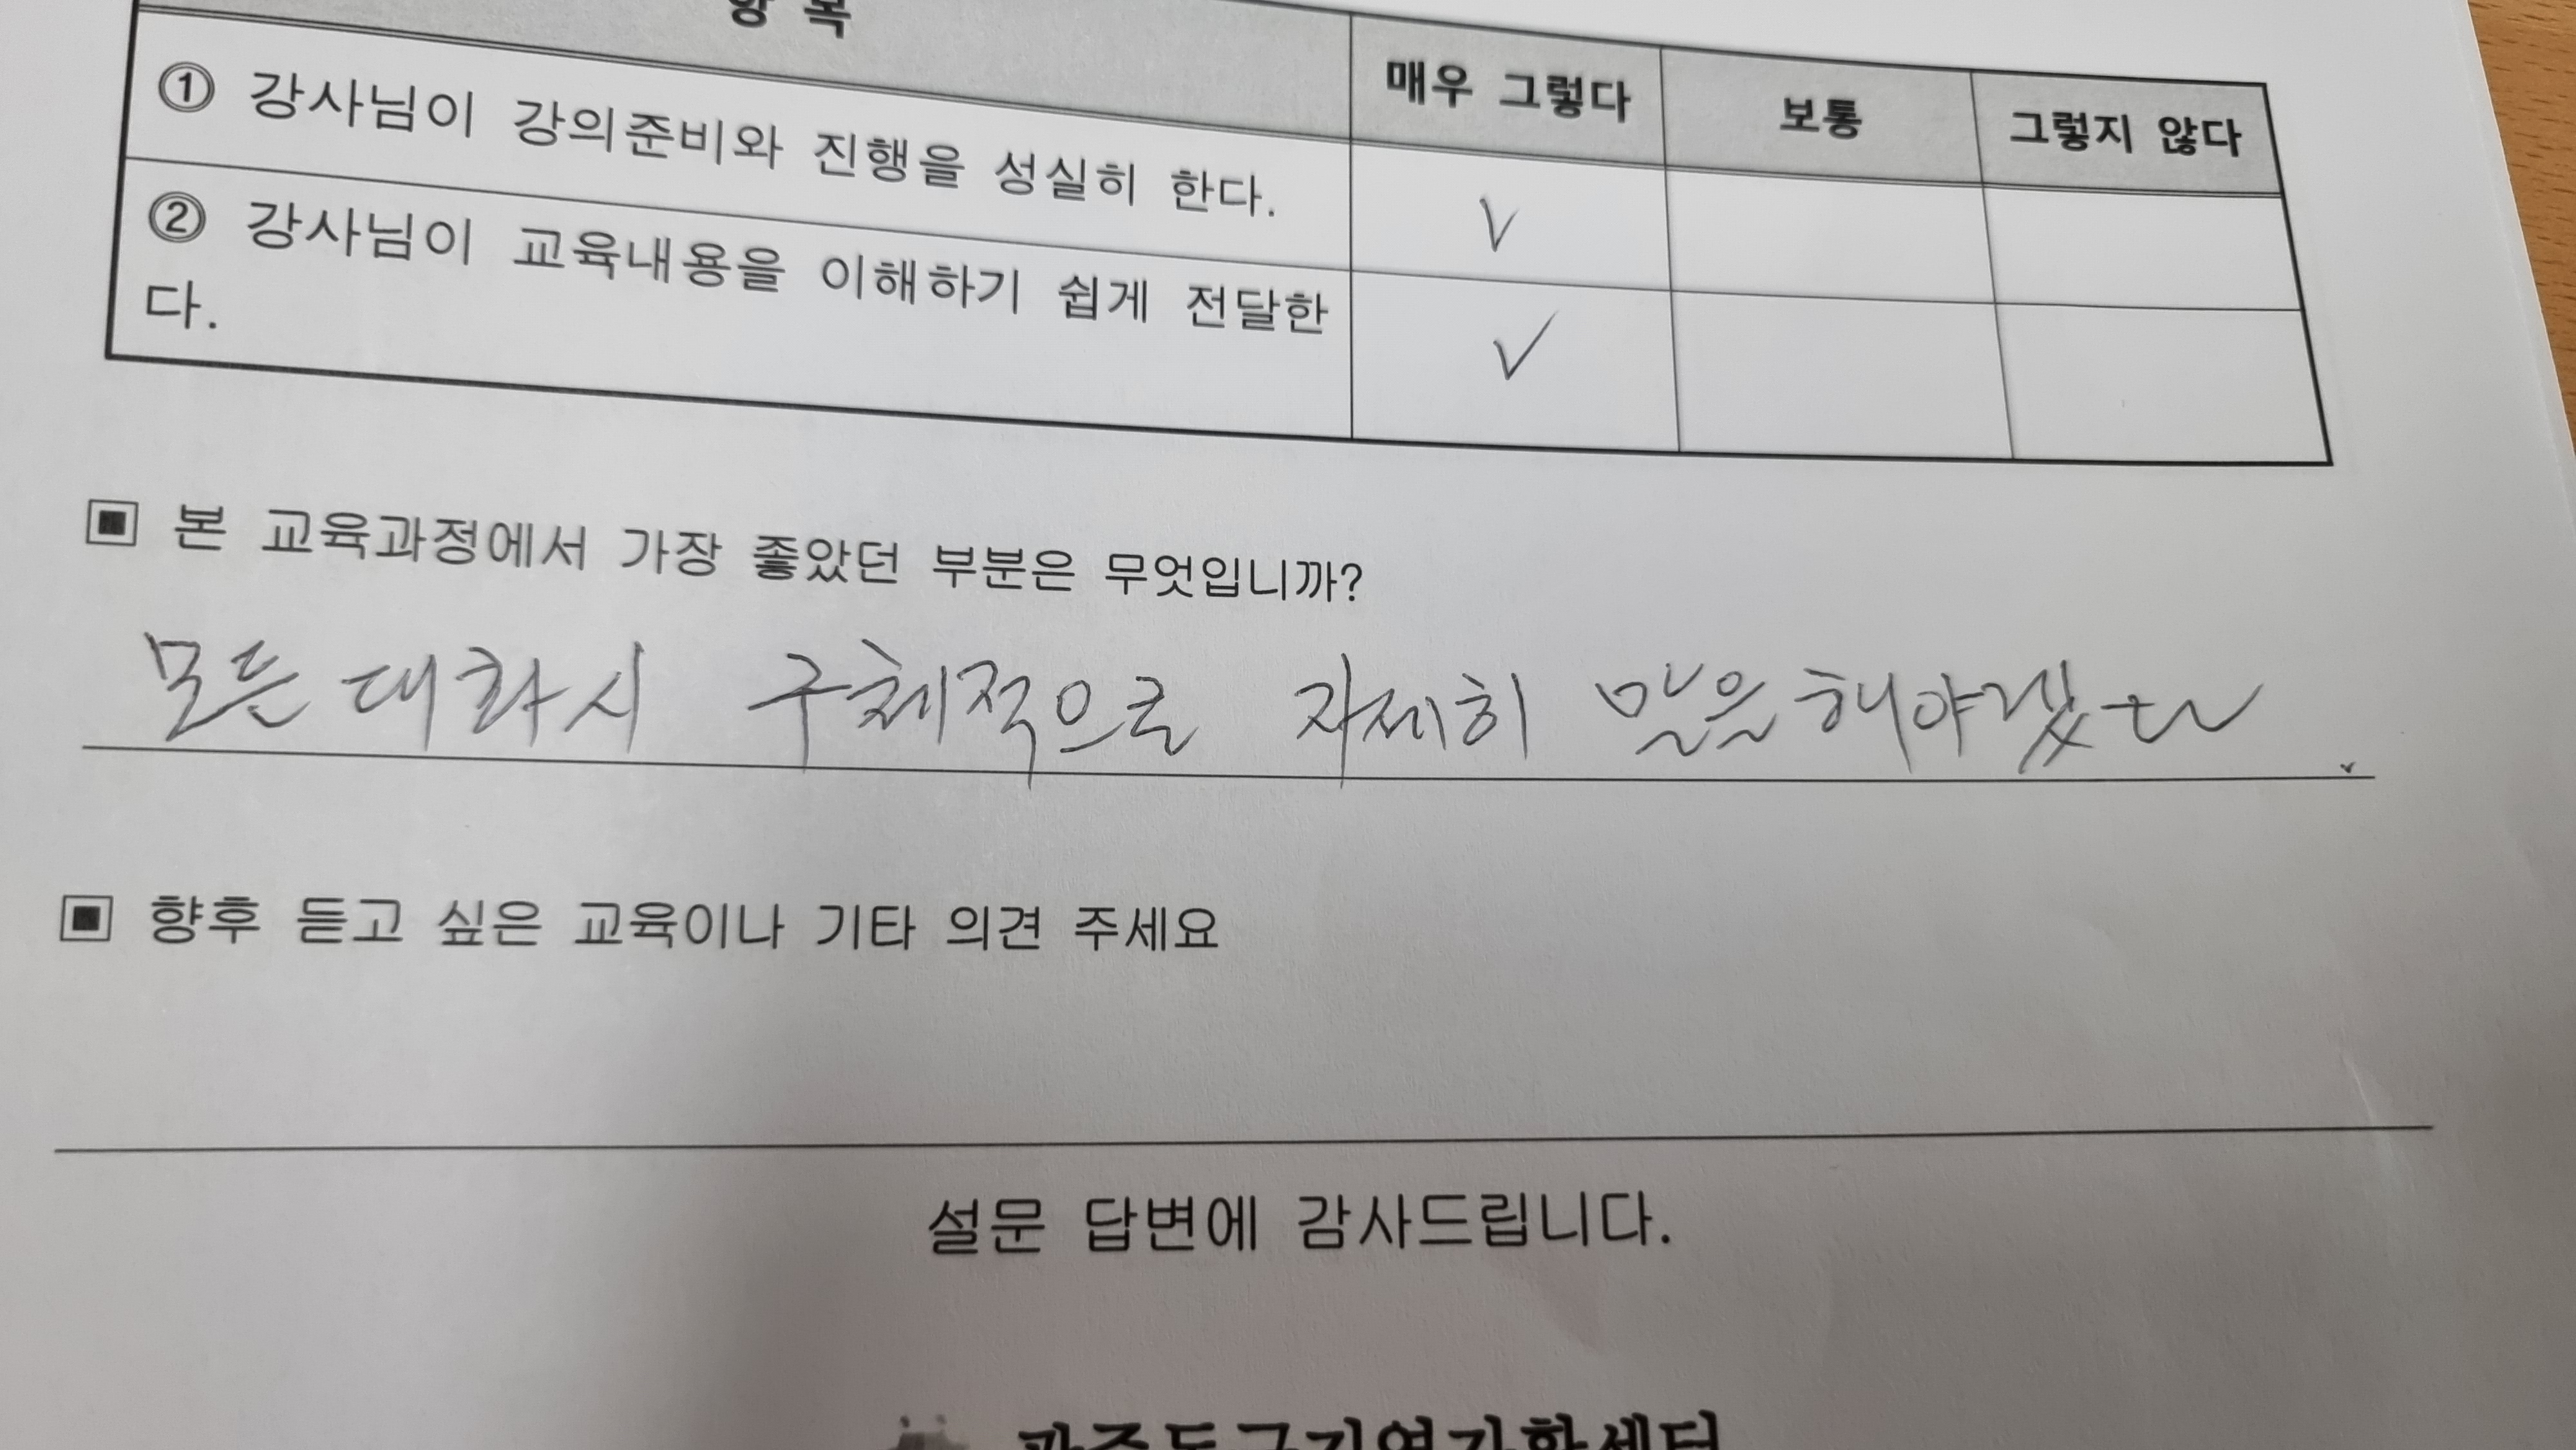 항 목 매우 그렇다 보통 그렇지 않다
① 강사님이 강의준비와 진행을 성실히 한다. V
② 강사님이 교육내용을 이해하기 쉽게 전달한 ✓
다.
▣ 본 교육과정에서 가장 좋았던 부분은 무엇입니까?
모든 대화시 구체적으로 자세히 말을 해야겠
▣ 향후 듣고 싶은 교육이나 기타 의견 주세요
설문 답변에 감사드립니다.
광주동구지역자활센터